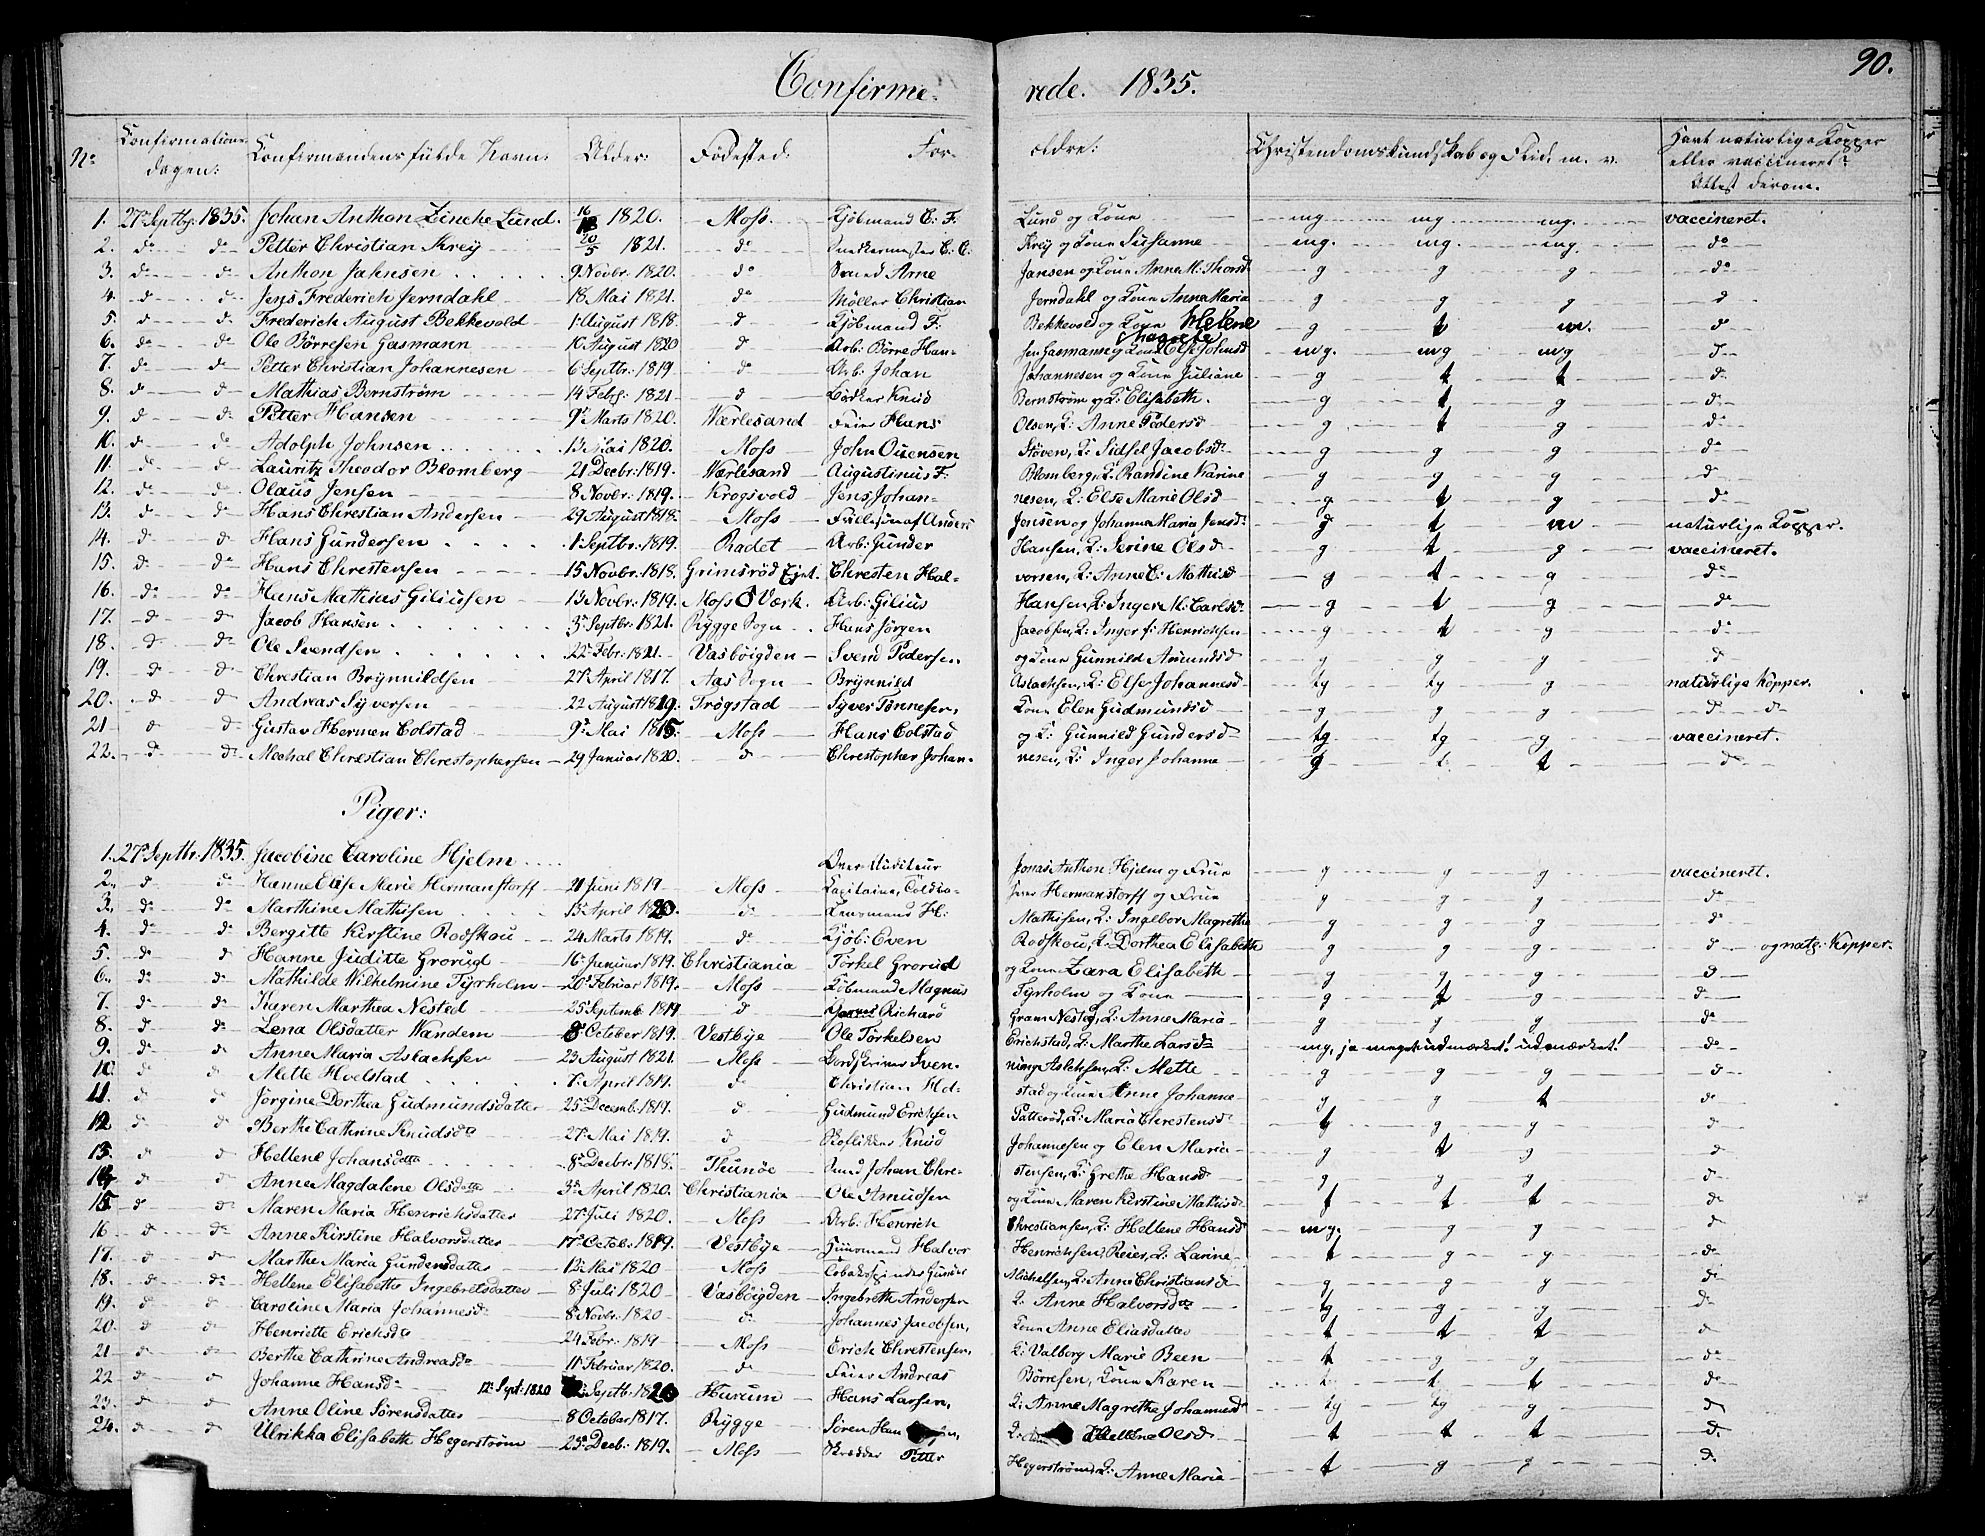 Confirme- rede. 1835. 90.
No Confirmations dagen: Confirmandens fulde Navn: Alder: Fødested: For- ældre: Christendomskundskab og Flid. m. v. Havt naturlige Kopper eller vaccineret? Attest derom.
1. 27de Septbr: 1835. Johan Anthon Zincke Lund. 1820. Moss. Kjøbmand C. F. Lund og Kone mg mg mg. vaccineret.
2. do do Petter Christian Krey 20/5 1821. do Snedkermester C. C. Krey og Kone Susanne mg. mg. mg. do
3. d do Anthon Jahnsen 9. Novbr. 1820. do Smed Arne Jansen og Kone Anne M. Thorsd g g g do
4. d do Jens Frederich Jerndahl 18 Mai 1821. do Møller Christian Jerndahl og Kone Anna Maria g g g d
5. d d Frederich August Bekkevold 1. August 1818. d Kjøbmand F. Bekkevold og Kone Helene Magrete g t m. d
6. do d Ole Børresen Gasmann 10 August 1820 d Arb: Børre Han- sen Gasmann og Kone Else Johnsd mg. mg mg d
7. do do Petter Christian Johannesen 6 Septbr: 1819. d Arb. Johan Johannesen og Kone Juliane g t t d.
8. d d Mathias Bernstrøm 14 Febr: 1821. d Bødker Knud Bernstrøm og K: Elisabeth. g t g d
9. d d Petter Hansen 9de Marts 1820. Værlesand Feier Hans Olsen, K: Anne Pedersd g t g do
10. d do Adolph Johnsen 13 Mai 1820. Moss John Ouensen Støven, K: Sidsel Jacobsd g g g do
11. d d Lauritz Theodor Blomberg 21 Decbr: 1819. Værlesand Augustinus F: Blomberg, K: Randine Karine g g g d
12. do do Olaus Jensen 8 Novbr: 1819. Krogsvold Jens Johan- nesen, K: Else Marie Olsd g t g do
13. do d Hans Chrestian Andersen 29 August 1818. Moss Frillesøn af Anders Jonsen og Johanne Maria Jensd. g t m naturlige Kopper.
14. d d Hans Gundersen 1 Septbr. 1819. Radet Arb: Gunder Hansen, K: Serine Olsd g t g vaccineret.
15. d d Hans Chrestensen 15 Novbr: 1818. Grimsrød Ejet. Chresten Hal- vorsen, K: Anne C: Mathisd g t g do
16. do do Hans Mathias Giliusen 13 Novbr: 1819. Moss Værk. Arb: Gilius Hansen, K: Inger M: Carlsd. g t g do
17. d d Jacob Hansen 3de Septbr. 1821. Rygge Sogn Hans Jörgen Jacobsen, K: Inger f: Henrichsen g t g do
18. d do Ole Svendsen 22 Febr: 1821. Vasbøigden Svend Pedersen og Kone Gunnild Amundsd g g g d
19. d d Chrestian Brynnildsen 27 April 1817. Aas Sogn Brynnild Aslachsen, K: Else Johannesd tg tg g naturlige Kopper.
20. d d Andreas Syversen 22 August 1819 Trøgstad Syver Tønnesen, Kone Elen Gudmundsd g g g d d
21 d d Gustav Hermen Colstad 9de Mai 1815. Moss Hans Colstad og K: Gunnild Gundersd tg tg g vaccineret.
22. d d. Mechal Chrestian Chrestophersen 29 Januar 1820. d Chrestopher Johan- nesen, K: Inger Johanne g t t d
Piger:
1. 27de Septbr: 1835. Jacobine Caroline Hjelm Over Auditeur Jonas Anthon Hjelm og Frue g g g vaccineret.
2. d d Hanne Elise Marie Hermanstorff 21 Juni 1819 Moss Capitaine, Coldia- Hermanstorff og Frue g g g d
3. do do Marthine Mathisen 13 April 1820. d Lensmand H: Mathisen, K: Ingebor Magrethe g g g do
4. d do Bergitte Kirstine Rodskou 24 Marts 1819. do Kjøb: Even Rodskou, K: Dorthea Elisabeth g g g d og natg: Kopper.
5. d d Hanne Juditte Grorud 16 Januar 1819. Christiania Torkel Grorud og Kone Zara Elisabeth g g g d
6. do do Mathilde Wilhelmine Tyrholm 20de Februar 1819. Moss Kjøbmand Magnus Tyrholm og Kone g t g d
7. do do Karen Marthea Nested 25 Septemb 1819 d Richard Gram Nested, K: Anne Maria g g g d
8. d do Lena Olsdatter Wandem 8 October 1819. Vestbye Ole Torkelsen Erichstad, K: Marthe Larsd mg, ja meget udmærket! udmærket! do
9. d d Anne Maria Aslachsen 23 August 1821. Moss Sven- ning Aslachsen, K: Mette g g g d
10. d d Alette Hoelstad April 1819. d Christian Hol- stad og Kone Anne Johanne g g t d
11. d d Jørgine Dorthea Gudmundsdatter 25 Decemb. 1819. d Gudmund Erichsen Patterød, K: Maria Chrestensd t g g d
12 d d Berthe Cathrine Knudsd 27. Mai 1819. d Knud Johannesen og Elen Maria g t g d
13. d d Hellene Johansdatter 8 Decbr: 1818. Thunøe Smed Johan Chre- stensen, K: Grethe Hansd g g g d
14. d d Anne Magdalene Olsdatter 3de April 1820. Christiania Ole Amudsen og Kone Maren Kirstine Mathisd t t t d
15 d d Maren Maria Henrichsdatter 27 Juli 1820. Moss Arb. Henrich Chrestiansen, K: Hellene Hansd mg. g g d
16 d do Anne Kirstine Halvorsdatter 17 Octob. 1819. Vestbye Huusmand Halvor Henrichsen, Reier, K: Larine t g g d
17. d d Marthe Maria Gundersdatter 12 Mai 1820 Moss Tobakspinder Gunder Michelsen, K: Anne Christiansd g g g d
18. d do Hellene Elisabeth Ingebretsdatter 8 Juli 1820 Vasbøigden Ingebreth Andersen K: Anne Halvorsdt tg g g d
19. d d Caroline Maria Johannesd 8 Novbr: 1820 d. Johannes Jacobsen, Kone Anne Eliasdatter t t t d
20. d d Henriette Erichsd 24 Febr: 1819 Moss Erich Chrestensen, K: Valborg Marie Been t g g d
21. d d Berthe Cathrine Andreasd 11 Februar 1820. d Feier Andreas Børresen, Kone Karen t. t t d
22 d d Johanne Hansd 12 Sept: 1820 Septb. 1820 Hurum Hans Larsen, K: Anne Magrethe Johannesd tg tg g d
23. d d Anne Oline Sørensdatter 8 October 1817. Rygge Søren Han K: Hellene Olsd t t t d
24. d d Ulrikka Elisabeth Hegerstrøm 25 Decb: 1819. Moss Skrædder Petter Hegerstrøm, K: Anne Maria t g g d